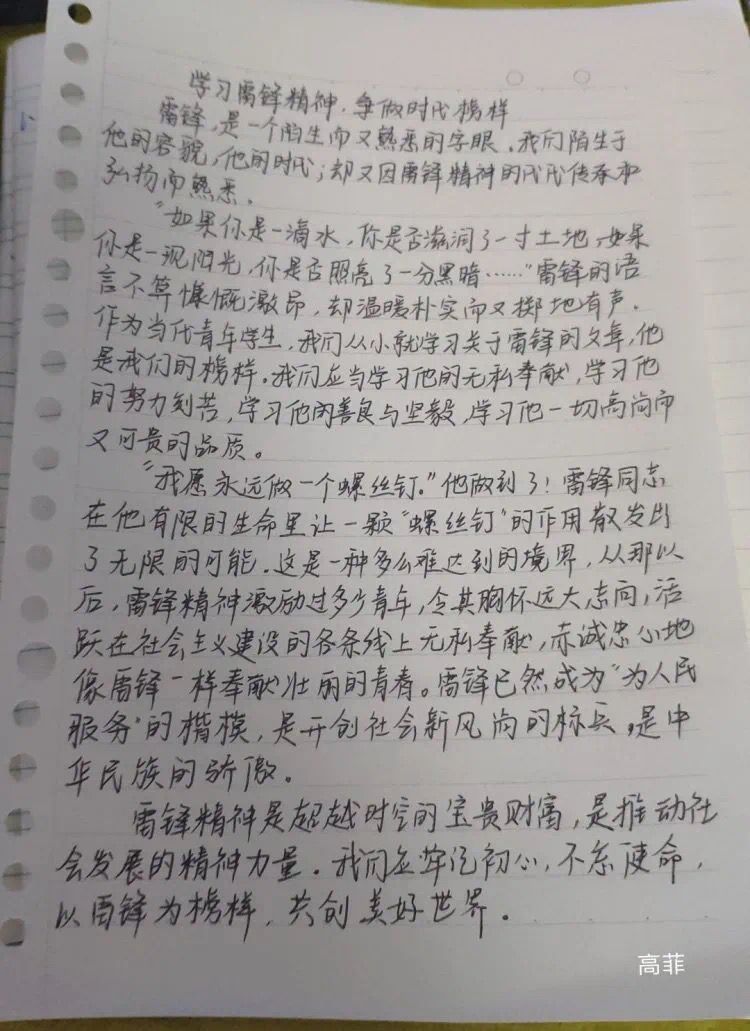 学习雷锋精神，争做时代榜样
雷锋，是一个陌生而又熟悉的字眼。我们陌生于
他的容貌，他的时代；却又因雷锋精神的代代传承而
弘扬而熟悉。
“如果你是一滴水，你是否滋润了一寸土地，如果
你是一现阳光，你是否照亮了一分黑暗……”雷锋的语
言不算慷慨激昂，却温暖朴实而又掷地有声。
作为当代青年学生，我们从小就学习关于雷锋的文章，他
是我们的榜样。我们应当学习他的无私奉献，学习他
的努力刻苦，学习他的善良与坚毅，学习他一切高尚而
又可贵的品质。
“我愿永远做一个螺丝钉。”他做到了！雷锋同志
在他有限的生命里让一颗“螺丝钉”的作用散发出
了无限的可能。这是一种多么难达到的境界，从那以
后，雷锋精神激励过多少青年，令其胸怀远大志向，活
跃在社会主义建设的各条线上无私奉献，赤诚忠心地
像雷锋一样奉献壮丽的青春。雷锋已然成为“为人民
服务”的楷模，是开创社会新风尚的标兵，是中
华民族的骄傲。
雷锋精神是超越时空的宝贵财富，是推动社
会发展的精神力量。我们应牢记初心，不忘使命，
以雷锋为榜样，共创美好世界。
高菲